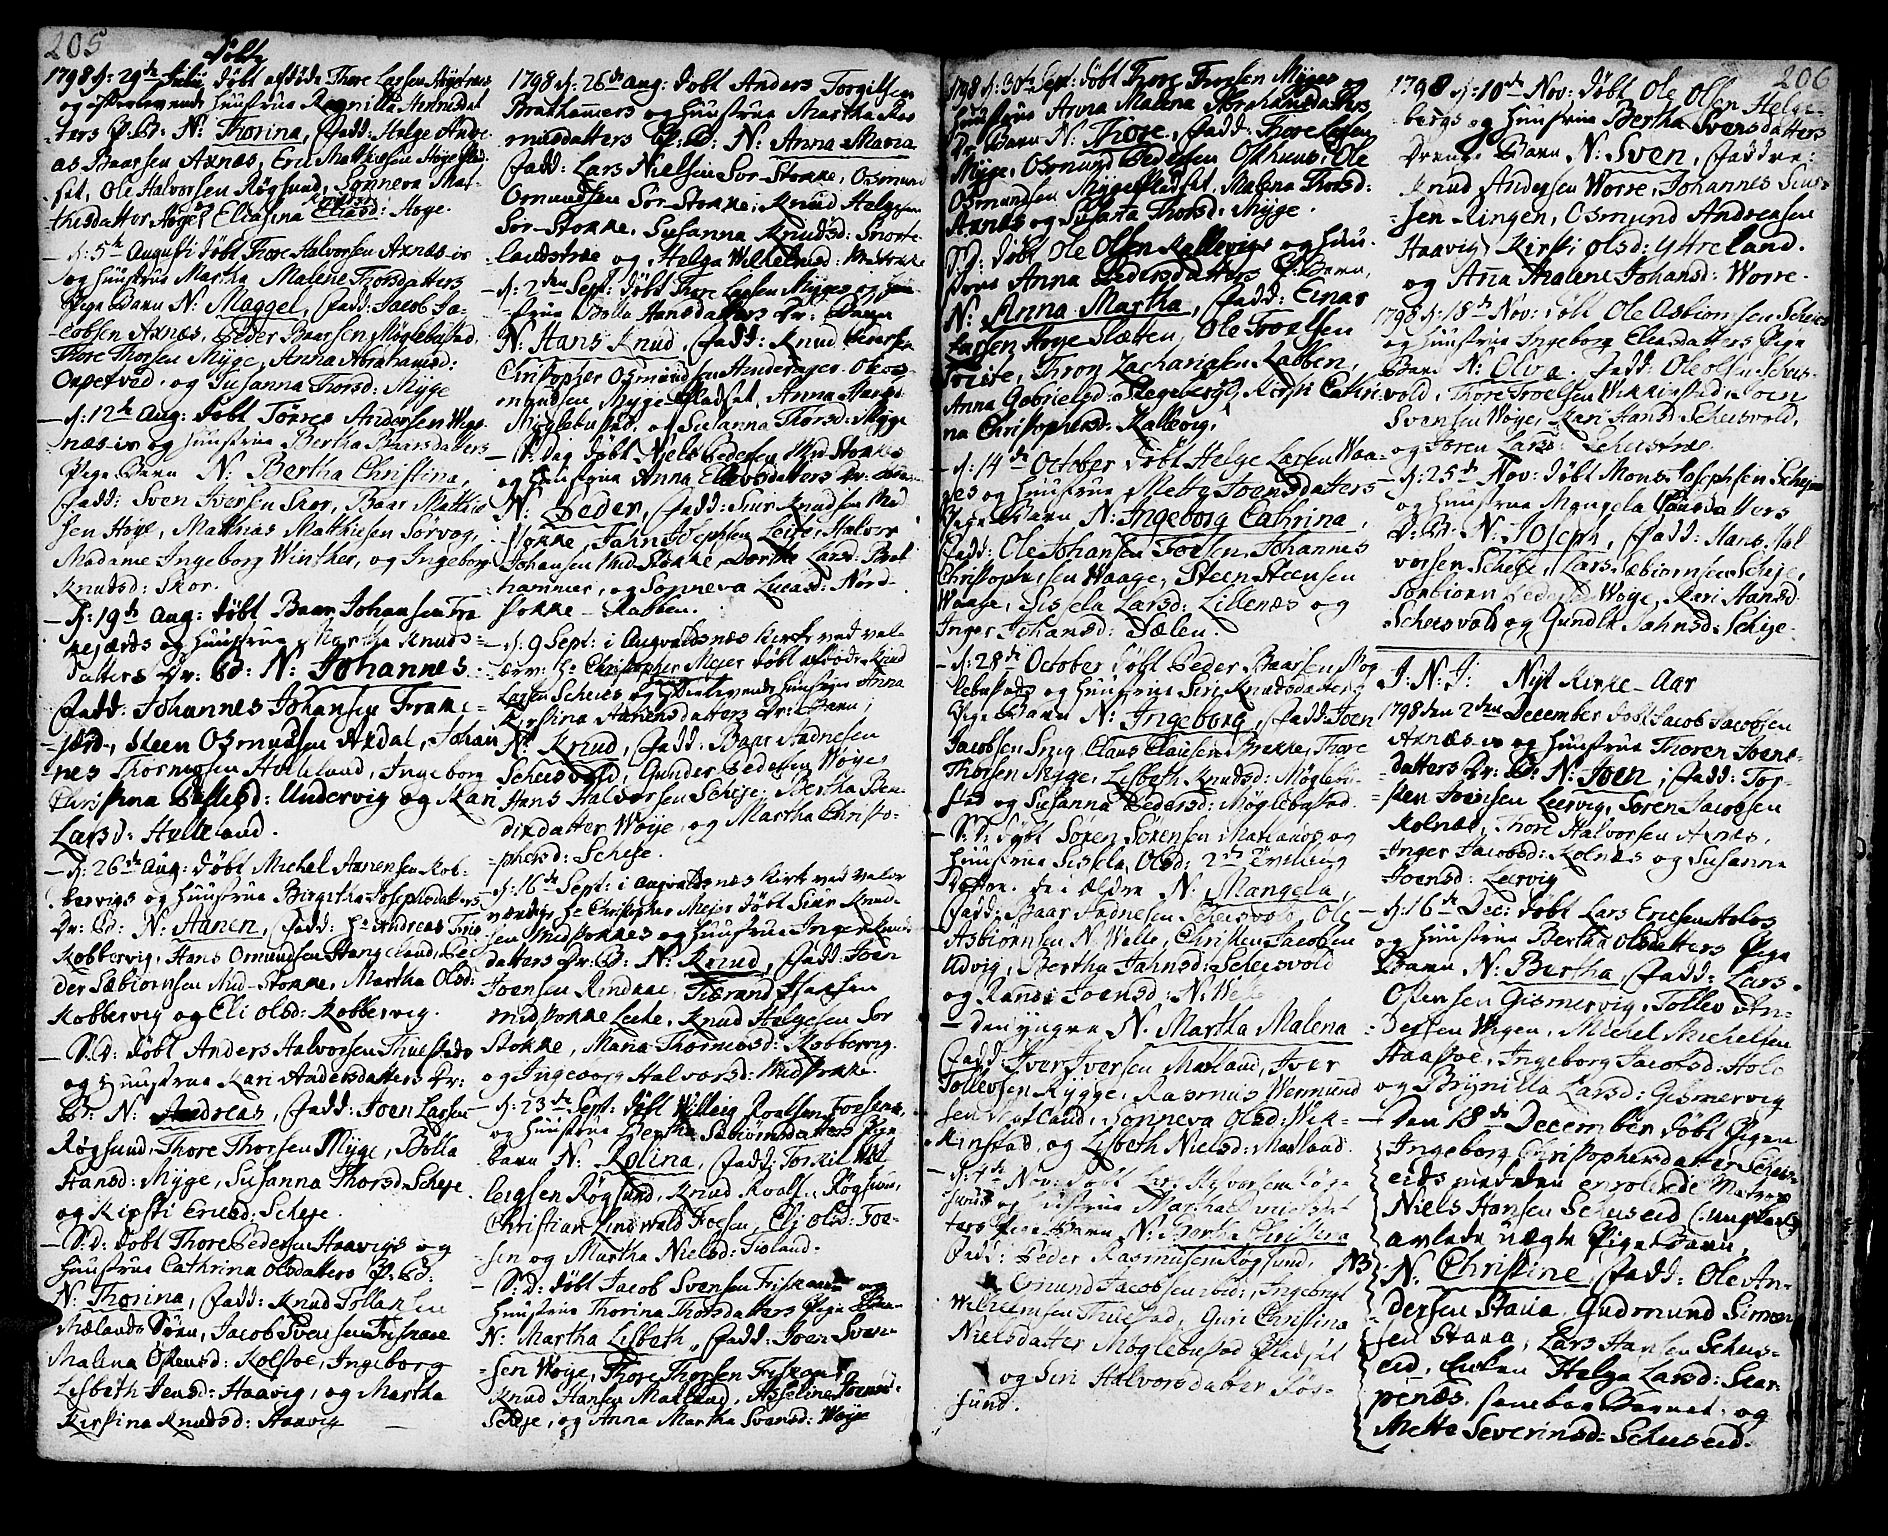 205
Døbte
1798 d: 29de Julii Døbt afdøde Thore Larsen Høystnæs
og efterlevende Huustrue Ragnilla Arnisdat
ters P: Bd: N: Thorina, Fadd: Helge Andre
as Baarsen Axnæs, Eric Mathisen Høye Plad
set, Ole Halvorsen Røgsund, Sønneva Mat-
thisdatter Høye og Eliasina Eliasd: Høye.
— d: 5te Augusti døbt Thore Halvorsen Axnæs
og Huustrue Martha Malene Thorsdatters
Pige Barn N: Maggel, Fadd: Jacob Ja-
cobsen Axnæs, Peder Baarsen Møglebustad,
Thore Thorsen Myge, Anna Abrahamsd:
og Susanna Thorsd: Myge
— d: 12te Aug: Døbt Tørres Andersen
og Huustrue Bertha Baarsdatters
Pige Barn N: Bertha Christina,
Fadd: Sven Iversen Skor, Baar Mathie
sen Høye, Matthias Matthiesen Sørvog,
Madame Ingeborg Winther, og Ingeborg
Knudsd: Skor.
— d: 19de Aug: Døbt Baar Johansen Fra
kejærds og Huustrue Martha Knuds-
datters Dr: Bd: N: Johannes.
Fadd: Johannes Johansen Frakke-
jærd, Steen Osmundsen Axdal, Johan
nes Thormosen Hulleland, Ingeborg
Christina Undervig og Kari
Larsd: Hulleland.
— d: 26de Aug: Døbt Michel Aanensen Kob-
bervigs og Huustrue Birgitha Josephsdatters
Dr: Bd: N: Aanen, Fadd: Hr Andreas
Kobbervig, Hans Ormundsen Stangeland, Pe
der Sæbiørnsen Mid-Stokke, Martha Olsd:
Kobbervig og Eli Olsd: Kobbervig.
— S: D: Døbt Anders Halvorsen Thuestads
og Huustrue Kari Andersdatters Dr:
Bd: N: Andreas, Fadd: Joen Larsen
Røgsund, Thore Thorsen Myge, Bolla
Hansd: Myge, Susanna Thorsd: Scheje
og Kirsti Ericsd: Scheje.
— S: D: Døbt Thore Pedersen Haavigs og
Huustrue Cathrina Olsdatters P: Bd:
N: Thorina, Fadd: Knud Tollaksen
Mælands Søen, Jacob Svensen Friskaae
Malina Østensd: Kolstøe, Ingeborg
Lisbeth Jensd: Haavig, og Martha
Kirstina Knudsd: Haavig
1798 d: 26de Aug: Døbt Anders Torgilsen
Brathammers og Huustrue Martha Ras
musdatters P: Bd: N: Anna Maria
Fadd: Lars Nielsen Sør-Stokke, Osmund
Ormundsen Sør-Stokke, Knud Helgesen
Sør-Stokke, Susanna Knudsd: Snorte
landstræe og Helga Wilhelmsd: Midstokke
— d: 2den Sept: Døbt Thore Larsen Myges og Huu-
strue Bolla Hansdatters Dr: Barn
N: Hans Knud, Fadd: Knud
Christopher Osmundsen Anderager, Ole Os-
mundsen Myge Pladset, Anna Hansd:
Møglebustad, og Susanna Thorsd: Myge
— S: Dag Døbt Niels Pedersen Mid Stokkes
og Huustrue Anna Ellevsdatters Dr: Barn
N: Peder, Fadd: Siur Knudsen Mid
stokke, Jahn Josephsen Leite, Halvor
Johansen Mid Stokke, Dorthe Larsd: Brat
hammer, og Sønneva Lucasd: Nord-
stokke-Rabben.
— d: 9 Sept: i Augvaldsnæs Kirke ved vel
ærv: Hr Christopher Meier Døbt afdøde Knud
Larsen Scheies og efterlevende Huustrue Anna
Kirstina Aanensdatters Dr: Barn,
N: Knud, Fadd: Baar Aadnesen
Scheisvold, Gunder Pedersen Woyes
Hans Halvorsen Scheje, Bertha Ben
dixdatter Woye, og Martha Christo-
phersd: Scheje.
— d: 16de Sept: i Augvaldsnæs Kirke ved velær
værdige Hr Christopher Meier Døbt Siur Knud-
sen Midstokkes og Huustrue Inger Knuds
datters Dr: B: N: Knud, Fadd: Joen
Joensen Rindane, Tiærand Isacsen
Midstokke Leite, Knud Helgesen Sør
Stokke, Maria Thormosd: Kobbervig
og Ingeborg Halvorsd: Midstokke.
— d: 23de Sept: Døbt Willeig Roalsen Foesens
og Huustrue Bertha Sæbiørnsdatters Pige
barn N: Rolina, Fadd: Torkil Wil
leigsen Røgsund, Knud Roalsen Røgsund,
Christian Lindwald Foesen, Eli Olsd: Foe-
sen og Martha Nielsd: Fisland.
— S: D: Døbt Jacob Svensen Friskaae og
Huustrue Thorina Thorsdatters Pige Barn
N: Martha Lisbeth, Fadd: Joen Sven-
sen Woye, Thore Thorsen Friskaae
Knud Hansen Matland, Asseline Joensd:
Scheje, og Anna Martha Svensd: Woye
1798 d: 30te Sept: Døbt Thore Thorsen Myges og
Huustrue Anna Malena Abrahamsdatters
Dr: Barn N: Thore, Fadd: Thore Larsen
Myge, Osmund Pedersen Osthuus, Ole
Osmundsen Myge Pladset, Malena Thorsd:
Axnæs og Susanna Thorsd: Myge.
S: D: Døbt Ole Olsen Kallevigs og Huu-
strue Anna Pedersdatters P: Barn,
N: Anna Martha, Fadd: Einar
Larsen Høye Sletten, Ole Troelsen
Tron Zachariasen Rabben,
Anna Gabrielsd: Stegeberg, Kirsti Cathri
na Christophersd: Kallevig.
— d: 14de October Døbt Helge Larsen Waa-
ges og Huustrue Mete Joensdatters
Pige Barn N: Ingeborg Cathrina,
Fadd: Ole Johansen Foesen, Johannes
Christophersen Waage, Steen Steensen
Waage, Sissela Larsd: Lillenæs og
Inger Johansd: Sælen.
— d: 28de October Døbt Peder Baarsen Møg
lebustads og Huustrue Siri Knudsdatters
Pige Barn N: Ingeborg, Fadd: Joen
Jacobsen Snig, Claus Clausen Brekke, Thore
Thorsen Myge, Lisbeth Knudsd: Møglebu-
stad og Susanna Pedersd: Møglebustad.
— S: D: Døbt Søren Sørensen Matlands og
Huustrue Siskela Olsd: 2de Tvilling
Døttre. den ældre N: Mangela,
Fadd: Baar Aadnesen Scheisvold, Ole
Asbiørnsen N. Welle, Christen Jacobsen
Udvig, Bertha Jahnsd: Scheisvold
og Randi Joensd: N: Welle
— den yngre N. Martha Malena
Fadd: Iver Iversen Matland, Iver
Tollevsen Rygge, Rasmus Wermund
sen Matland, Sønneva Olsd: Wik-
kinstad, og Lisbeth Nielsd: Matland.
— d: 4de Nov: Døbt Halvorsen Røge
sunds og Huustrue Martha
ters Pige Barn N: Bertha Christina
Fadd: Peder Rasmussen Røgsund, NB
Osmund Jacobsen ibid:, Ingeborg
Wilhelmsen Thuestad, Guri Christina
Nielsdatter Møglebustad Pladset
og Siri Halvorsdatter Røg-
sund.
206
1798 d: 10de Nov: Døbt Ole Olsen Helge
bergs og Huustrue Bertha Svensdatters
Drenge Barn N: Sven, Faddre:
Knud Andersen Worre, Johannes Sius-
sen Ringen, Osmund Andreasen
Haavig, Kirsti Olsd: Ytreland.
og Anna Malene Johansd: Worre.
1798 d: 18de Nov: Døbt Ole Asbiørnsen Scheies
og Huustrue Ingeborg Eliasdatters Pige
Barn N: Oliva. Fadd: Ole Olsen Scheis-
vold, Thore Troelsen Wikkinstad, Joen
Svensen Woye, Kari Hansd: Scheisvold,
og Søren Larsd: Scheistræe.
— d: 25de Nov: Døbt Mons Josephsen Scheje
og Huustrue Mangela Clausdatters
Dr: Br: N: Joseph, Fadd: Hans Hal
vorsen Scheje, Lars Sæbiørnsen Scheje,
Torbiørn Pedersen Woye, Kari Hansd:
Scheisvold og Gundla Jahnsd: Scheje.
I: N: J: Nyt Kirke-Aar
1798 den 2den December Døbt Jacob Jacobsen
Axnæs og Huustrue Thoren Joens-
datters Dr: B: N: Joen, Fadd: Tor-
sten Joensen Leervig, Søren Jacobsen
Kolnæs, Thore Halvorsen Axnæs,
Inger Jacobsd: Kolnæs og Susanna
Joensd: Leervig
— d: 16de Dec: Døbt Lars Ericsen Aaloes
og Huustrue Bertha Olsdatters Pige
Barn N: Bertha, Fadd: Lars
Ostensen Gismervig, Tollev An-
dersen Wigen, Michel Michelsen
Haastoe, Ingeborg Jacobsd:
og Brynilla Larsd: Gismervig
— Den 18de December Døbt Pigen
Ingeborg Christophersdatter Scheis-
eids med den enrollerede Matros
Niels Hansen Scheiseid (Ungkarl)
avlede uægte Pige Barn,
N: Christine, Fadd: Ole An-
dersen Stava, Gudmund Simon
sen Stava, Lars Hansen Scheis-
eid, Enken Helga Larsd: Skar-
penæs. som bar Barnet: og
Mette Severinsd: Scheiseid.